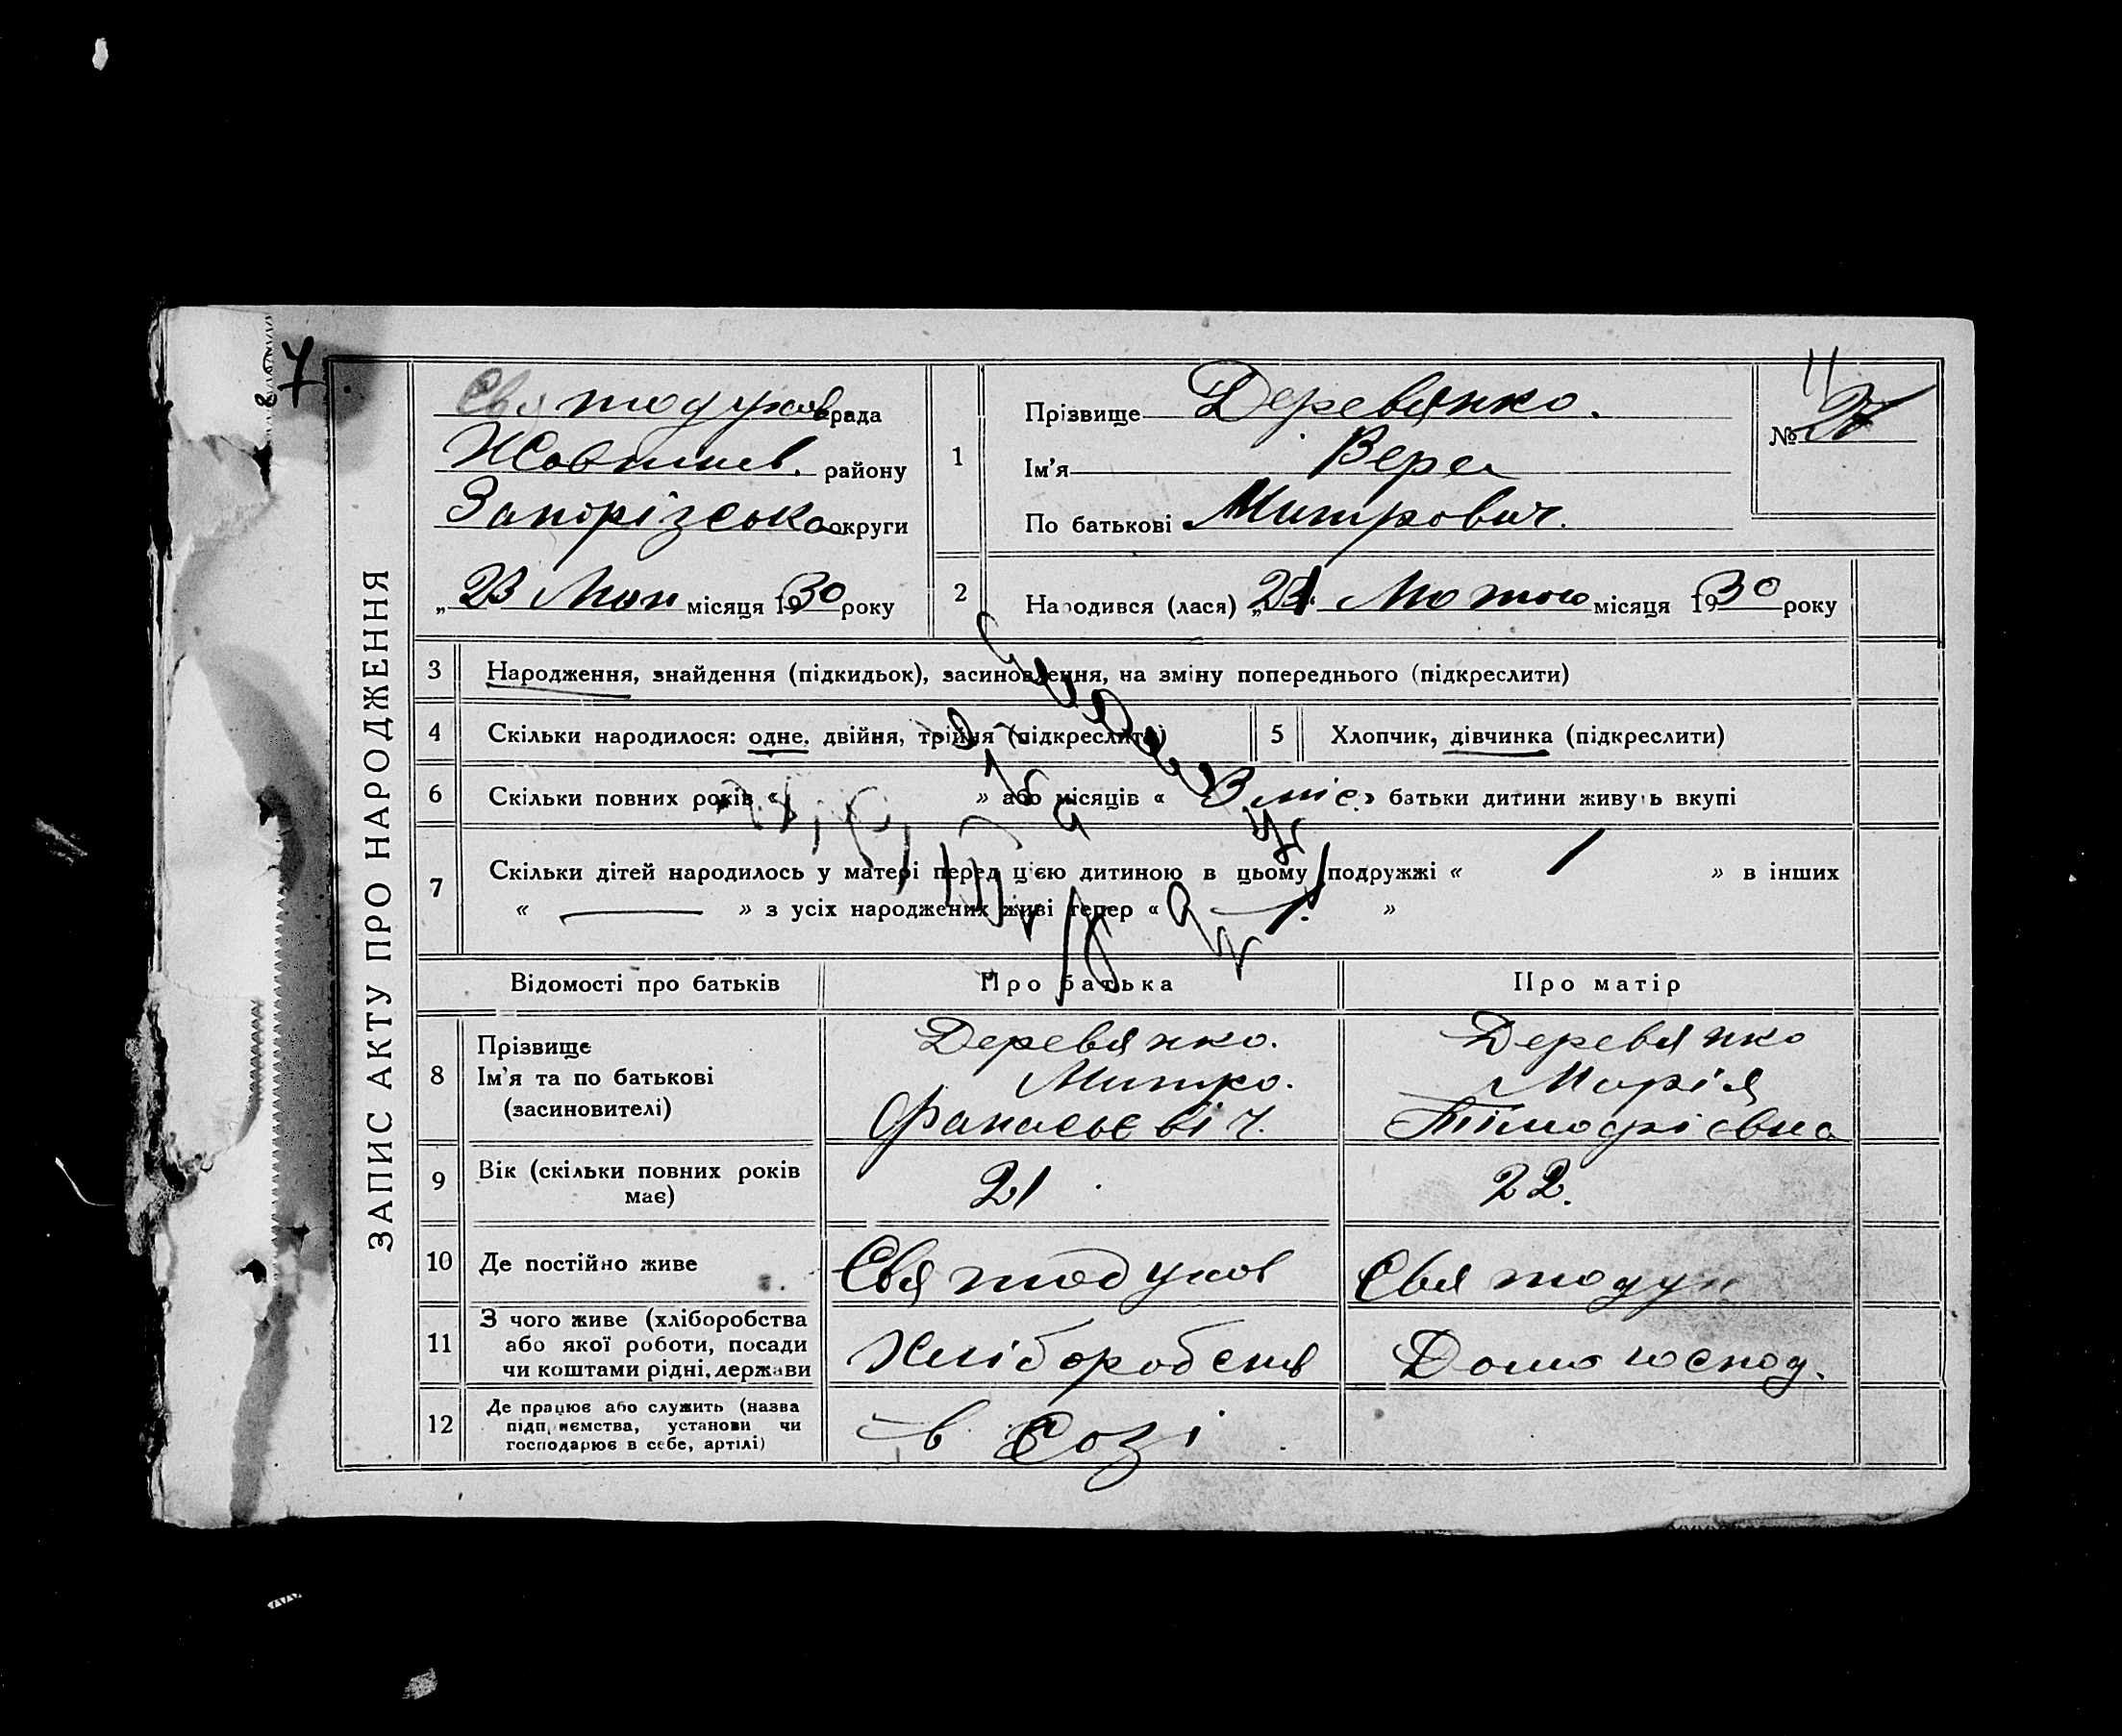 7
ЗАПИС АКТУ ПРО НАРОДЖЕННЯ
Святодухов рада
Жовтнев. району
Запорізська округи
„23 Мая місяця 1930 року
1
Прізвище Деревянко.
Ім'я Вера
По батькові Митрович.
№ 27
11
2
Народився (лася) „ Лютого місяця 1930 року
3 Народження, знайдення (підкидьок), засиновлення, на зміну попереднього (підкреслити)
4 Скільки народилося: одне, двійня, трійня (підкреслити)
5 Хлопчик, дівчинка (підкреслити)
6 Скільки повних років « » або місяців « 3 міс. » батьки дитини живуть вкупі
7 Скільки дітей народилось у матері перед цією дитиною в цьому подружжі « » в інших
« — » з усіх народжених живі тепер « »
Відомості про батьків Про батька Про матір
8 Прізвище
Ім'я та по батькові
(засиновителі)
Деревянко.
Митро.
Фанасьєвіч.
Деревянко
Марія
Тімофрієвна
9 Вік (скільки повних років
має)
21
22.
10 Де постійно живе
Святодухов
Святодух
11 З чого живе (хліборобства
або якої роботи, посади
чи коштами рідні, держави
Хліборобств
Домогоспод.
12 Де працює або служить (назва
підприємства, установи чи
господарює в себе, артілі)
в Созі